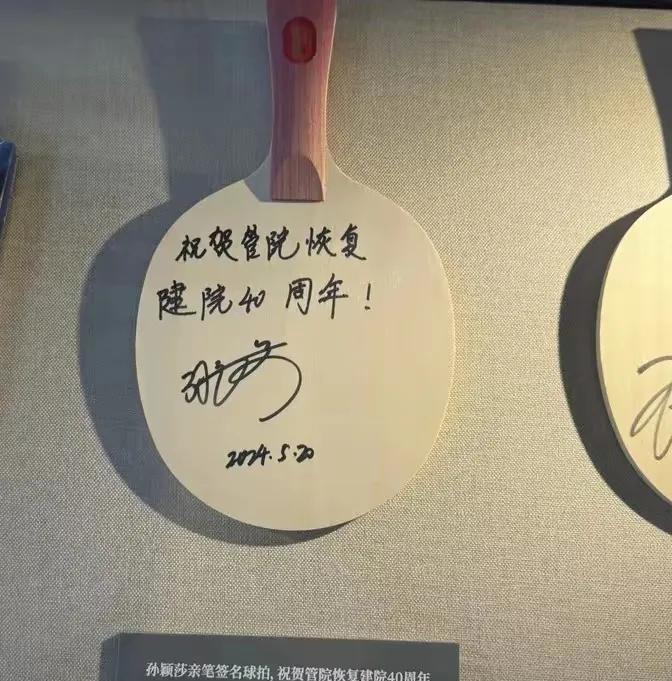 祝贺管院恢复
建院40周年！
孙颖莎
2024.5.20
孙颖莎亲笔签名球拍，祝贺管院恢复建院40周年